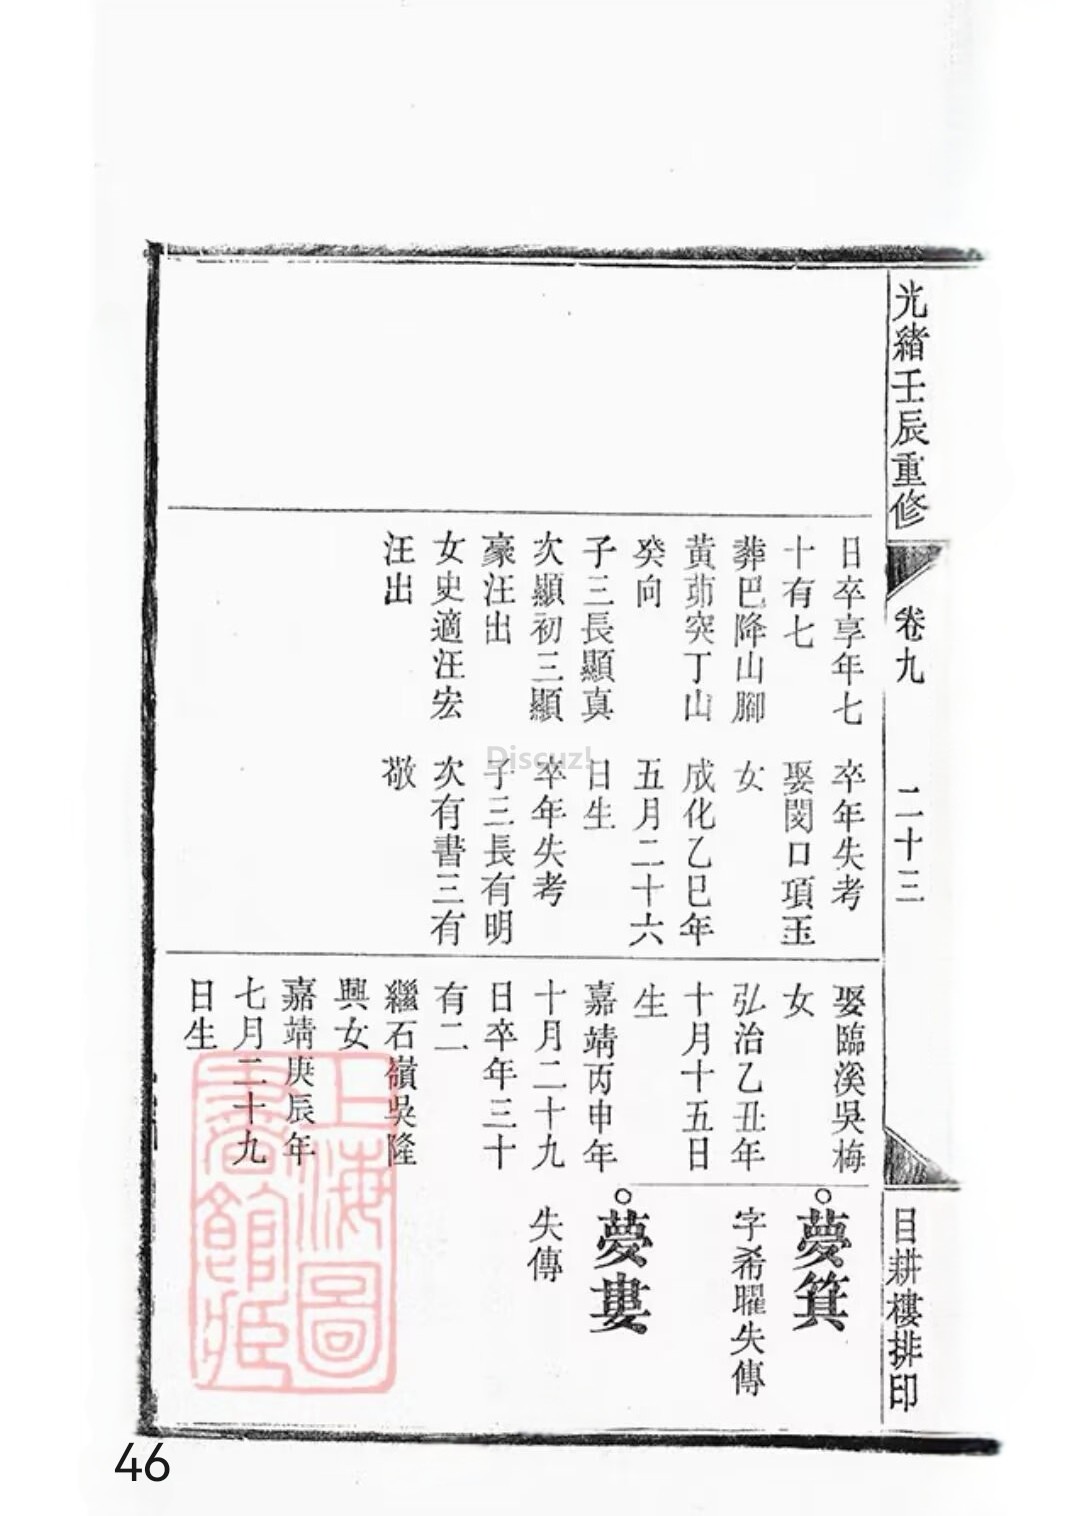 光緒壬辰重修
卷九
二十三
目耕樓排印
日卒享年七
十有七
葬巴降山腳
黃茆突丁山
癸向
子三長顯真
次顯初三顯
豪汪出
女史適汪宏
汪出
卒年失考
娶閔口項玉
女
成化乙巳年
五月二十六
日生
卒年失考
子三長有明
次有書三有
敬
娶臨溪吳梅
女
弘治乙丑年
十月十五日
生
嘉靖丙申年
十月二十九
日卒年三十
有二
繼石嶺吳隆
興女
嘉靖庚辰年
七月二十九
日生
○夢箕
字希曜失傳
○夢婁
失傳
上海圖
書館藏
Discuz!
46